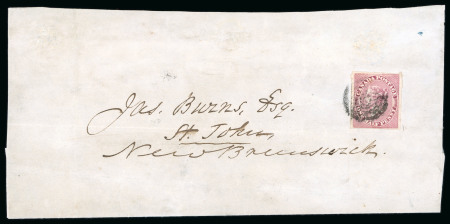 Jas. Burns, Esq.
St. John,
New Brunswick.